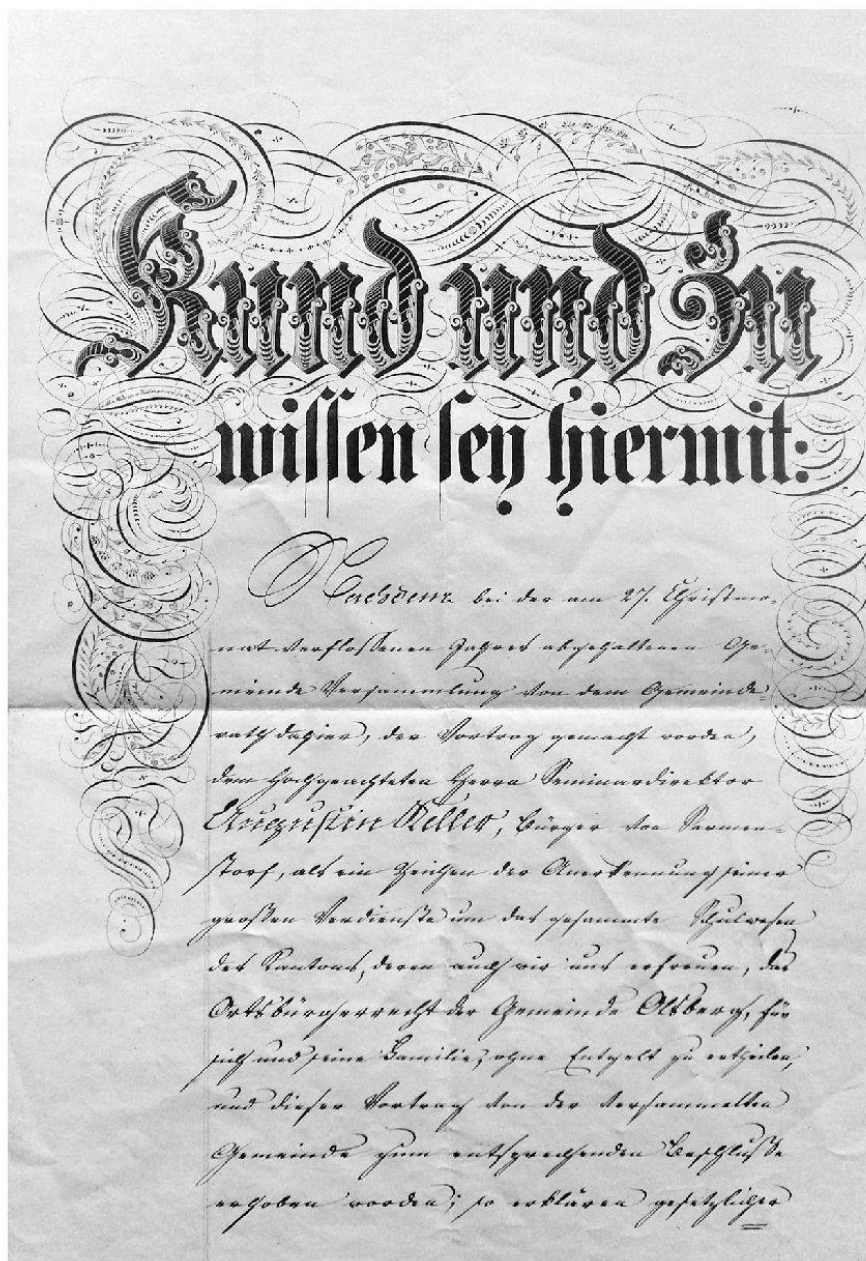 Kund und Zu
wissen sey hiermit:
Nachdem bei der am 27. Christmo-
nat verflossenen Jahres abgehaltenen Ge-
meinde Versammlung von dem Gemeinde-
rath dahier, der Vortrag gemacht worden,
dem Hochgeachteten Herrn Seminardirektor
Augustin Keller, Bürger von Sarmen-
storf, als ein Zeichen der Anerkennung seiner
großen Verdienste um das gesammte Schulwesen
des Kantons, deren auch wir uns erfreuen, das
Ortsbürgerrecht der Gemeinde Olsberg, für
sich und seine Familie, ohne Entgelt zu ertheilen,
und dieser Vortrag von der versammelten
Gemeinde zum entsprechenden Beschluße
erhoben worden; so erklären gesetzlicher